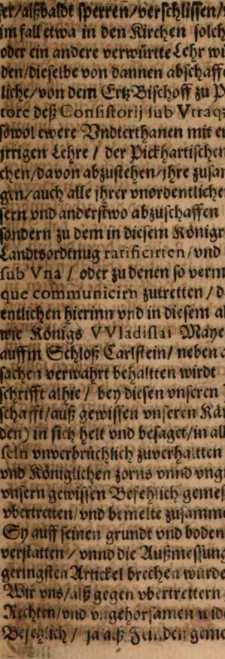 ser/alßbaldt sperren/verschlissen/
im fall etwa in den Kirchen solch
oder ein andere verwürrte Lehr wü
den/dieselbe von dannen abschaffe
liche/von dem Ertz Bischoff zu P
tore deß Consistorij sub Vtraq
sowol ewere Vnderthanen mit ei
jrrigen Lehre / der Pickhartischen
chen/davon abzustehen/jhre zusam
gen/auch alle jhrer vnordentliche
sern vnd anderßwo abzuschaffen
sondern zu dem in diesem Königr
Landtsordtnug ratificirten/vnd
sub Vna / oder zu denen so verm
que communicirn zutretten / d
entlichen hierinn vnd in diesem al
wie Königs VVladislai Maye
auffm Schloß Carlstein/ neben a
sachen verwahrt behaltten wirdt
schrifft alhie / bey diesen vnseren
schafft/auß gewissen vnseren Kan
den) in sich helt vnd besaget/in all
feln vnverbrüchlich zuverhaltten
vnd Königlichen zorns vnnd vng
vnsern gewissen Befehlich gemes
vbertretten/vnd bemelte zusamme
Sy auff seinen grundt vnd boden
verstatten / vnnd die Außmessung
geringsten Artickel brechen würde
Wir vns/alß gegen vbertrettern
Rechten/vnd vngehorsamen wide
Befehlich / ja alß Feinden geme